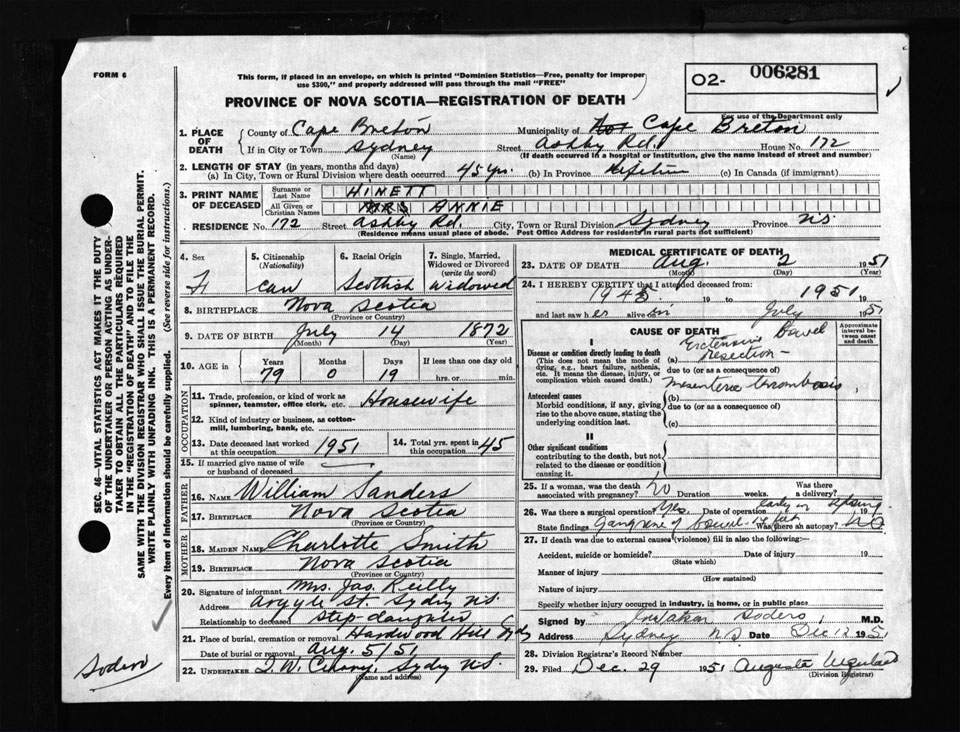 FORM 6
This form, if placed in an envelope, on which is printed "Dominion Statistics—Free, penalty for improper
use $300," and properly addressed will pass through the mail "FREE"
PROVINCE OF NOVA SCOTIA—REGISTRATION OF DEATH
02- 006281
For use of the Department only
1. PLACE OF DEATH
County of Cape Breton Municipality of Cape Breton
If in City or Town Sydney Street Ashby Rd. House No. 172
(Name) (If death occurred in a hospital or institution, give the name instead of street and number)
2. LENGTH OF STAY (in years, months and days)
(a) In City, Town or Rural Division where death occurred 45 yrs. (b) In Province (c) In Canada (if immigrant)
3. PRINT NAME OF DECEASED
Surname or Last Name HINETT
All Given or Christian Names MRS ANNIE
RESIDENCE No. 172 Street Ashby Rd. City, Town or Rural Division Sydney Province N.S.
(Residence means usual place of abode. Post Office Address for residents in rural parts not sufficient)
4. Sex 5. Citizenship (Nationality) 6. Racial Origin 7. Single, Married, Widowed or Divorced (write the word)
F Can Scottish Widowed
8. BIRTHPLACE Nova Scotia
(Province or Country)
9. DATE OF BIRTH July 14 1872
(Month) (Day) (Year)
10. AGE in Years Months Days If less than one day old
79 0 19 hrs. or min.
OCCUPATION
11. Trade, profession, or kind of work as spinner, teamster, office clerk, etc. Housewife
12. Kind of industry or business, as cotton-mill, lumbering, bank, etc.
13. Date deceased last worked at this occupation 1951 14. Total yrs. spent in this occupation 45
15. If married give name of wife or husband of deceased
FATHER
16. NAME William Sanders
17. BIRTHPLACE Nova Scotia
MOTHER
18. MAIDEN NAME Charlotte Smith
19. BIRTHPLACE Nova Scotia
(Province or Country)
20. Signature of informant Mrs. Jas. Reilly
Address Argyle St. Sydney N.S.
Relationship to deceased Step-daughter
21. Place of burial, cremation or removal Hardwood Hill Sydney
Date of burial or removal Aug. 5/51
22. UNDERTAKER T. W. Sydney N.S.
(Name and address)
MEDICAL CERTIFICATE OF DEATH
23. DATE OF DEATH Aug. 2 1951
(Month) (Day) (Year)
24. I HEREBY CERTIFY that I attended deceased from:
1945 19 to 1951 19
and last saw her alive on July 1951
CAUSE OF DEATH
Approximate interval between onset and death
I
Disease or condition directly leading to death
(This does not mean the mode of dying, e.g., heart failure, asthenia, etc. It means the disease, injury, or complication which caused death.)
(a) Extensive Bowel Resection -
due to (or as a consequence of)
Antecedent causes
Morbid conditions, if any, giving rise to the above cause, stating the underlying condition last.
Mesenteric thrombosis
(b)
due to (or as a consequence of)
(c)
II
Other significant conditions
contributing to the death, but not related to the disease or condition causing it.
25. If a woman, was the death associated with pregnancy? No Duration weeks. Was there a delivery?
26. Was there a surgical operation? Yes. Date of operation early in Spring 19
State findings Gangrene of bowel Was there an autopsy? No
27. If death was due to external causes (violence) fill in also the following:
Accident, suicide or homicide? Date of injury 19
(State which)
Manner of injury
(How sustained)
Nature of injury
Specify whether injury occurred in industry, in home, or in public place
Signed by Sodero, M.D.
Address Sydney N.S. Date Dec 12 1951
28. Division Registrar's Record Number
29. Filed Dec. 29 1951 Augusta
(Division Registrar)
SEC. 46—VITAL STATISTICS ACT MAKES IT THE DUTY
OF THE UNDERTAKER OR PERSON ACTING AS UNDER-
TAKER TO OBTAIN ALL THE PARTICULARS REQUIRED
IN THE "REGISTRATION OF DEATH" AND TO FILE THE
SAME WITH THE DIVISION REGISTRAR WHO SHALL ISSUE THE BURIAL PERMIT.
WRITE PLAINLY WITH UNFADING INK. THIS IS A PERMANENT RECORD.
Every item of information should be carefully supplied. (See reverse side for instructions.)
Sodero